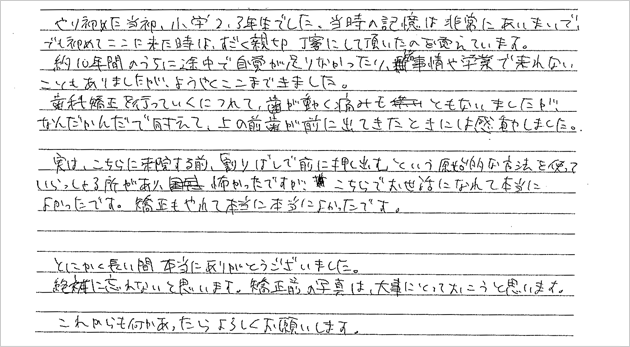 やり初めた当初、小学2、3年生でした、当時の記憶は非常にあいまいで、
でも初めてここに来た時は、だく親切丁寧にして頂いたのを覚えています。
約10年間のうちに途中で自覚が足りなかったり、事情や学業で来れない
こともありましたが、ようやくここまできました。
歯科矯正を行っていくにつれて、歯が動く痛みもともないましたが、
なんだかんだで耐えて、上の前歯が前に出てきたときには感動しました。
実は、こちらに来院する前、「割りばしで前に押し出す」という原始的な方法を使って
いらっしゃる所があり、怖かったですが、こちらでお世話になれて本当に
よかったです。矯正もやれて本当に本当によかったです。
とにかく長い間本当にありがとうございました。
絶対に忘れないと思います。矯正前の写真は、大事にとっておこうと思います。
これからも何かあったらよろしくお願いします。